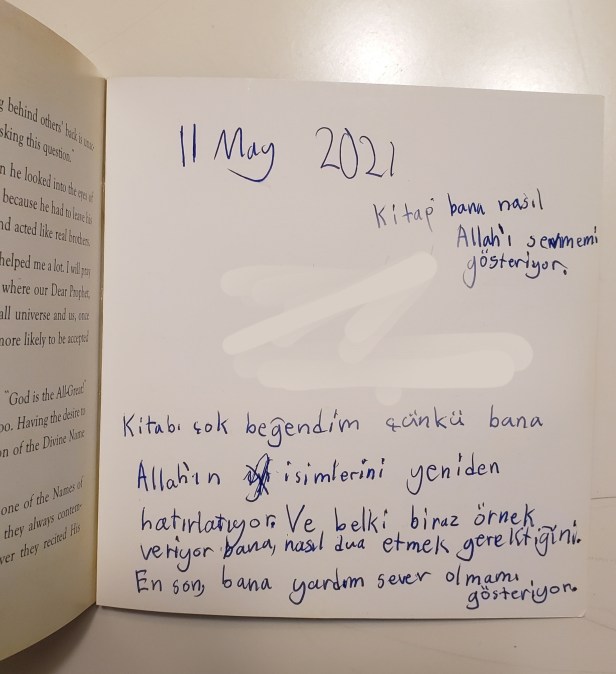 g behind others' back is
sking this question."
n he looked into the eyes of
because he had to leave his
nd acted like real brothers.
helped me a lot. I will pray
where our Dear Prophet,
all universe and us, once
more likely to be accepted
"God is the All-Great!"
oo. Having the desire to
on of the Divine Name
one of the Names of
they always contem-
ver they recited His
11 May 2021
Kitap bana nasıl
Allah'ı sevmemi
gösteriyor.
Kitabı çok beğendim çünkü bana
Allah'ın isimlerini yeniden
hatırlatıyor. Ve belki biraz örnek
veriyor bana, nasıl dua etmek gerektiğini.
En son, bana yardım sever olmamı
gösteriyor.